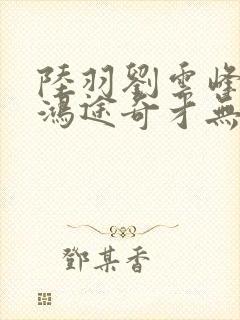 陸羽劉雲峰
鴻途奇才無
鄧某香